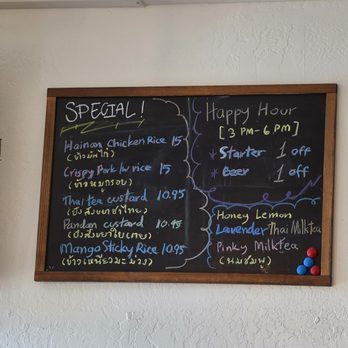 SPECIAL!
Hainan Chicken Rice 15
(ข้าวมันไก่)
Crispy Pork w rice 15
(ข้าวหมูกรอบ)
Thai tea custard 10.95
(ปังสังขยาชาไทย)
Pandan custard 10.95
(ปังสังขยาใบเตย)
Mango Sticky Rice 10.95
(ข้าวเหนียวมะม่วง)
Happy Hour
[3 PM-6 PM]
* Starter 1 off
* Beer 1 off
Honey Lemon
Lavender Thai Milktea
Pinky Milktea
(นมชมพู)